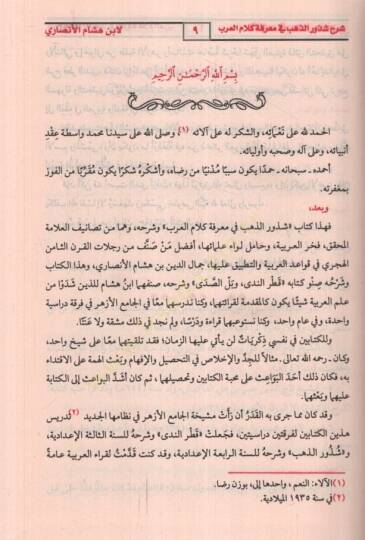 شرح شذور الذهب في معرفة كلام العرب ٩ لابن هشام الأنصاري
بِسْمِ اللَّهِ الرَّحْمَـٰنِ الرَّحِيمِ
الحمد لله على نَعْمَائِهِ، والشكر له على آلائه (١)، وصلى الله على سيدنا محمد واسطة عِقْد
أنبيائه، وعلى آله وصحبه وأوليائه.
أحمده ـ سبحانه ـ حمدًا يكون سببًا مُدْنيًا من رضاه، وأشكره شكرًا يكون مُقَرِّبًا من الفوز
بمغفرته.
وبعد،
فهذا كتاب «شذور الذهب في معرفة كلام العرب» وشرحه، وهما من تصانيف العلامة
المحقق، فخر العربية، وحامل لواء علمائها، أفضل مَنْ صَنَّف من رجلات القرن الثامن
الهجري في قواعد العربية والتطبيق عليها، جمال الدين بن هشام الأنصاري، وهذا الكتاب
وشَرْحُه صِنْو كتابه «قَطْر الندى، وبَلّ الصَّدَى» وشرحه، صنفهما ابنُ هشام للذين شَدَوْا من
علم العربية شيئًا يكون كالمقدمة لقرائتهما، وكنا ندرسهما معًا في الجامع الأزهر في فرقة دراسية
واحدة، وفي عام واحد، وكنا نستوعبهما قراءة ودَرْسًا، ولم نجد في ذلك مشقة ولا عَنَتًا.
وللكتابين في نفسي ذِكْرَيَاتٌ لن يأتي عليها الزمان؛ فقد تلقيتهما معًا على شيخ واحد،
وكان ـ رحمه الله تعالى ـ مثالًا للجِدِّ والإخلاص في التحصيل والإفهام وبَعْث الهمة على الاقتداء
به، فكان ذلك أحَدَ البَوَاعث على محبة الكتابين وتحصيلهما، ثم كان أشَدَّ البواعث إلى الكتابة
عليهما وبَعْثهما.
وقد كان مما جرى به القَدَرُ أن رَأَتْ مشيخة الجامع الأزهر في نظامها الجديد (٢) تدريس
هذين الكتابين لفرقتين دراسيتين، فجَعلتْ «قَطْر الندى» وشرحه للسنة الثالثة الإعدادية،
و«شُذُور الذهب» وشرحَهُ للسنة الرابعة الإعدادية، وقد كنت قَدَّمْتُ لقراء العربية عامةً
(١) الآلاء: النعم، واحدها إلى، بوزن رضا.
(٢) في سنة ١٩٣٥ الميلادية.